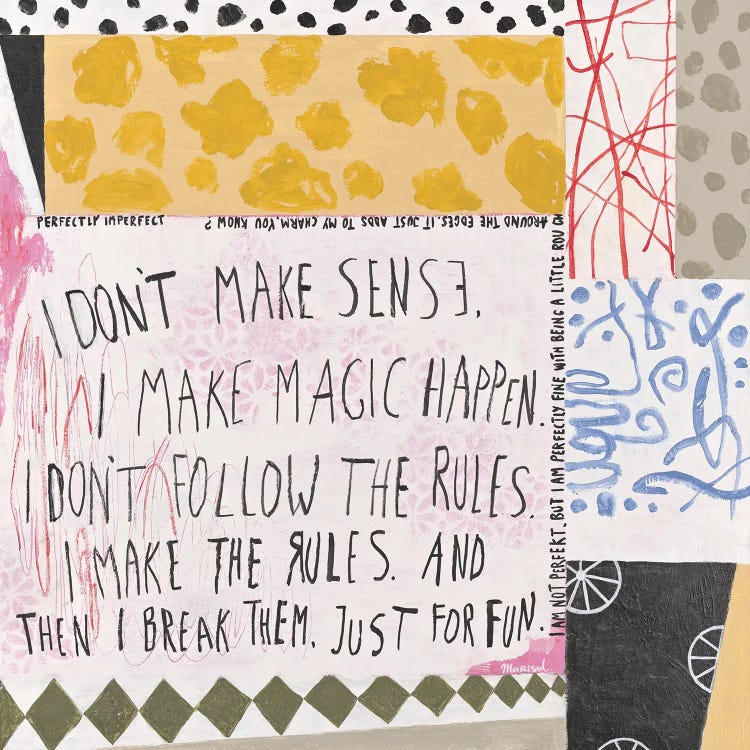 PERFECTLY IMPERFECT
I DON'T MAKE SENSƎ.
I MAKE MAGIC HAPPEN.
I DON'T FOLLOW THE RULES.
I MAKE THE ЯULES. AND
THEN I BREAK THEM. JUST FOR FUN.
I AM NOT PERFEKT. BUT I AM PERFECTLY FINE WITH BEING A LITTLE ROUGH
AROUND THE EDGES. IT JUST ADDS TO MY CHARM, YOU KNOW ?
Marisol